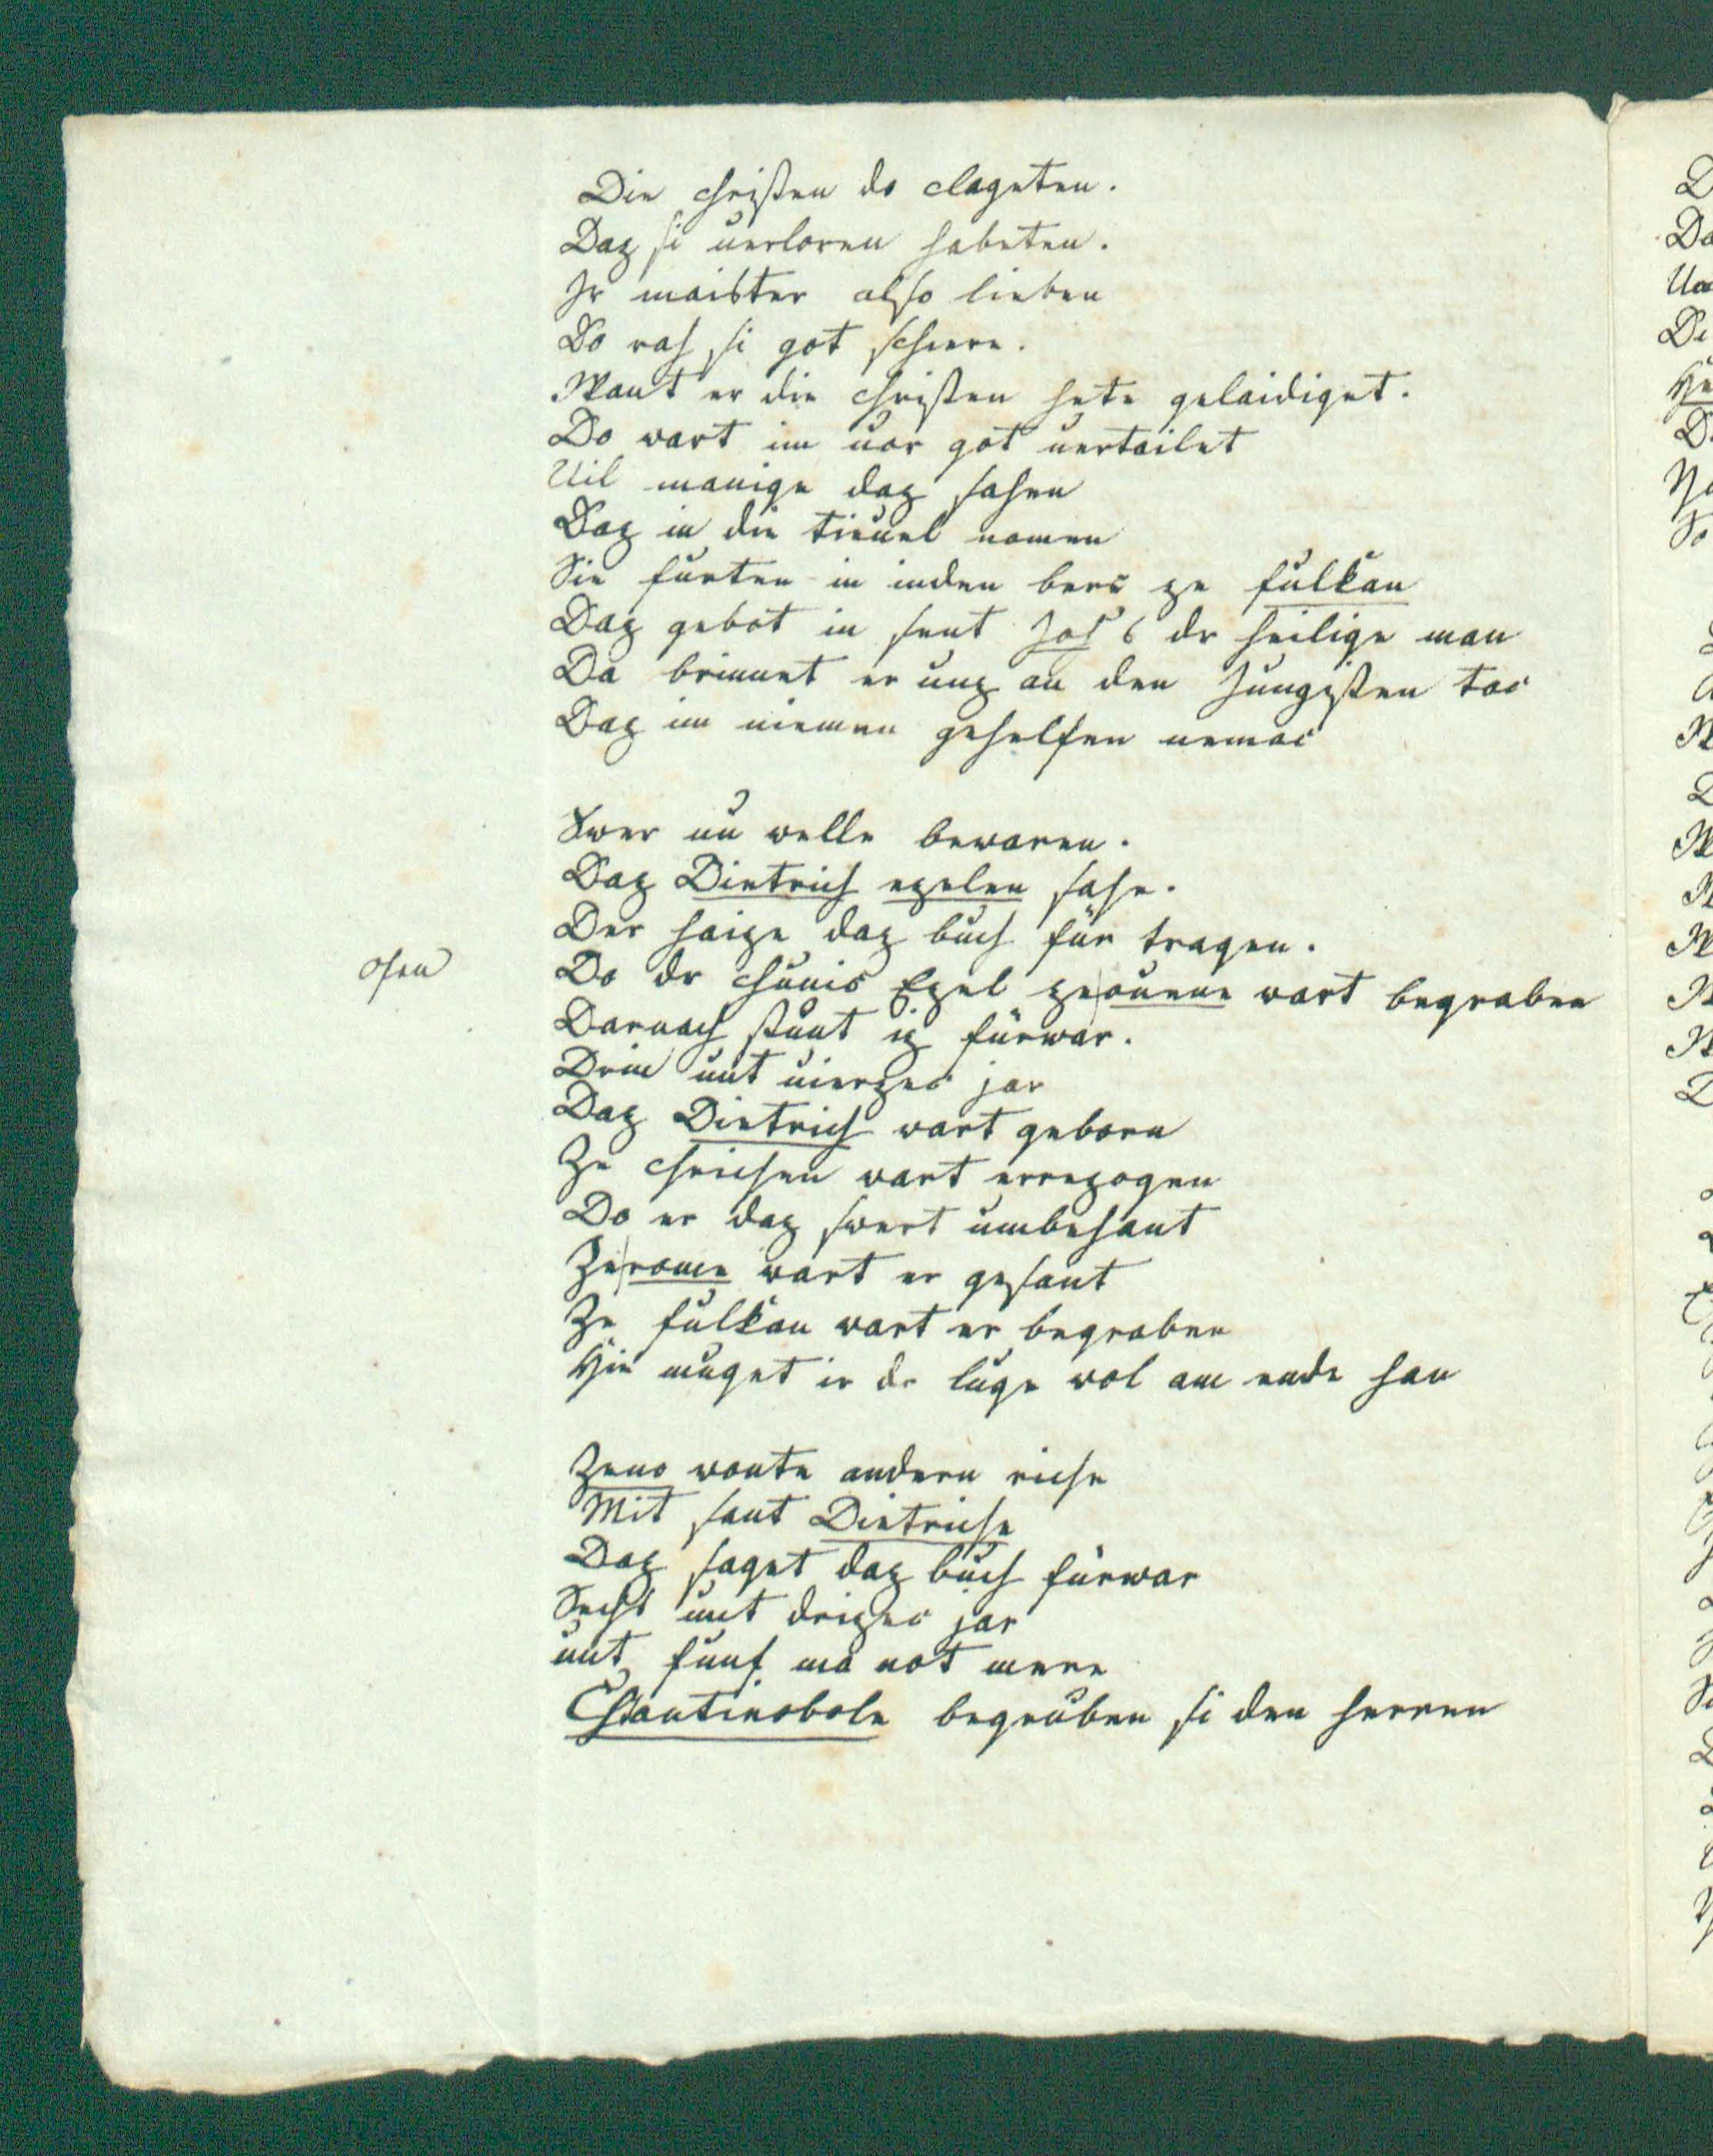 Die christen do clageten.
Daz si uerloren habeten.
Jr maister also lieben
Do rah si got schiere.
Want er die christen hete gelaidiget.
Do wart im uor got uertailet
Uil manige daz sahen
Daz in die tieuel namen
Sie fůrten in inden berc ze fulkan
Daz gebot in sent Johs dr heilige man
Da brinnet er unz an den Jungisten tac
Daz im niemen gehelfen nemac
Swer nu welle bewaren.
Daz Dietrich ezelen sahe.
Der haize daz bůch für tragen.
ofen
Do dr chunic Ezel ze ouene wart begraben
Darnach stůnt iz fürwar.
Driu unt uierzec jar
Daz Dietrich wart geborn
Ze chriechen wart errezogen
Do er daz swert umbehant
Ze rome wart er gesant
Ze fulkan wart er begraben
Hie muget ir dr luge wol am ende han
Zeno wonte andem riche
Mit sant Dietriche
Daz saget daz bůch fürwar
Sechs unt drizec jar
unt funf manot mere
Chstantinobole begrůben si den herren